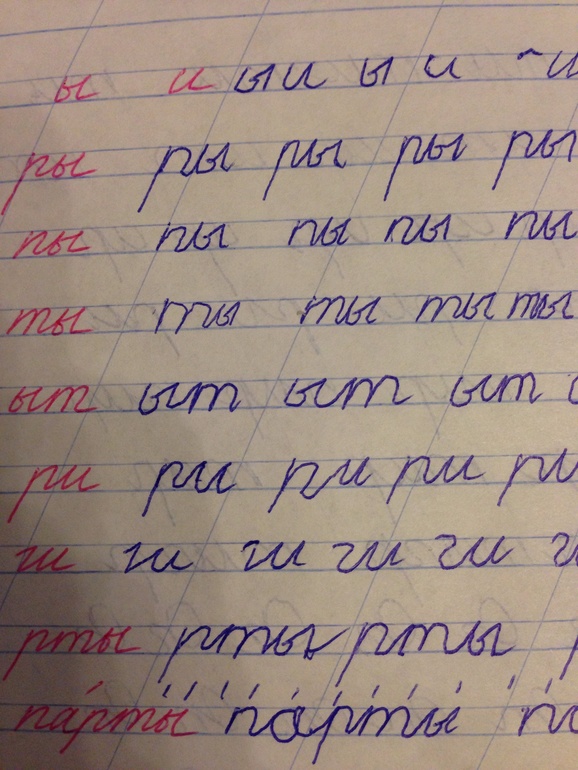 ы и ы и ы и и
ры ры ры ры ры
пы пы пы пы пы
ты ты ты ты ты
ыт ыт ыт ыт
ри ри ри ри ри
ги ги ги ги ги
рты рты рты
па́рты́ парты́